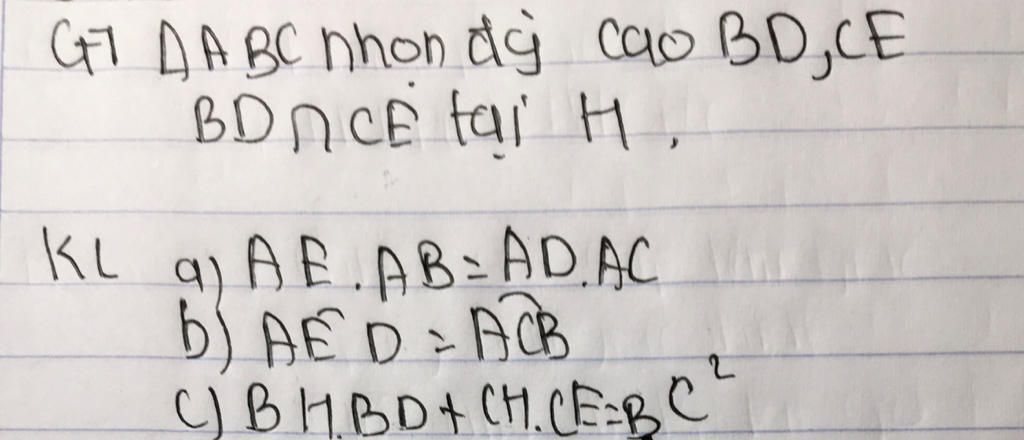 GT ΔABC nhọn đg cao BD,CE
BD∩CE tại H.
KL a) AE.AB=AD.AC
b) AÊD = AĈB
c) BH.BD+CH.CE=BC²